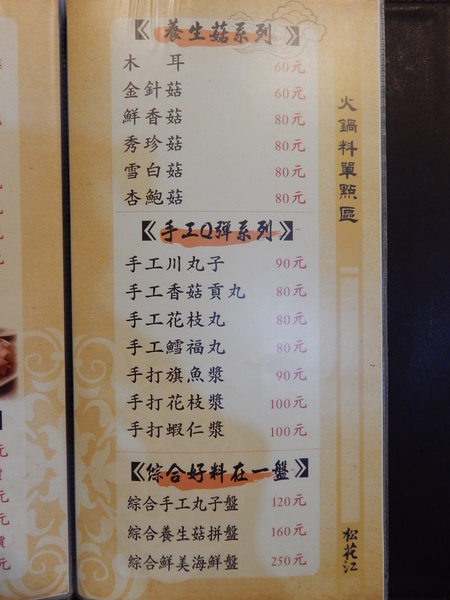 養生菇系列
木耳 60元
金針菇 60元
鮮香菇 80元
秀珍菇 80元
雪白菇 80元
杏鮑菇 80元
手工Q彈系列
手工川丸子 90元
手工香菇貢丸 80元
手工花枝丸 80元
手工鱈福丸 80元
手打旗魚漿 90元
手打花枝漿 100元
手打蝦仁漿 100元
綜合好料在一盤
綜合手工丸子盤 120元
綜合養生菇拼盤 160元
綜合鮮美海鮮盤 250元
火鍋料單點區
松花江